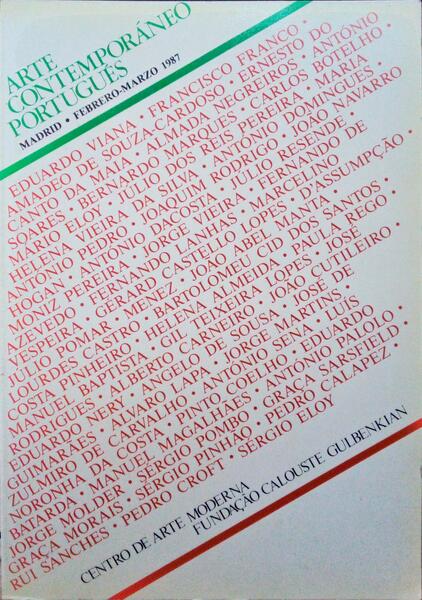 ARTE
CONTEMPORÁNEO
PORTUGUÉS
MADRID • FEBRERO-MARZO 1987
EDUARDO VIANA • FRANCISCO FRANCO •
AMADEO DE SOUZA-CARDOSO • ERNESTO DO
CANTO DA MAIA • ALMADA NEGREIROS • ANTÓNIO
SOARES • BERNARDO MARQUES • CARLOS BOTELHO •
MÁRIO ELOY • JÚLIO DOS REIS PEREIRA • MARIA
HELENA VIEIRA DA SILVA • ANTÓNIO DOMINGUES •
ANTÓNIO PEDRO • JOAQUIM RODRIGO • JOÃO NAVARRO
HOGAN • ANTÓNIO DACOSTA • JÚLIO RESENDE •
MONIZ PEREIRA • JORGE VIEIRA • FERNANDO DE
AZEVEDO • FERNANDO LANHAS • MARCELINO
VESPEIRA • GÉRARD CASTELLO LOPES • D'ASSUMPÇÃO •
JÚLIO POMAR • MENEZ • JOÃO ABEL MANTA •
LOURDES CASTRO • BARTOLOMEU CID DOS SANTOS •
COSTA PINHEIRO • HELENA ALMEIDA • PAULA REGO •
MANUEL BAPTISTA • GIL TEIXEIRA LOPES • JOSÉ
RODRIGUES • ALBERTO CARNEIRO • JOÃO CUTILEIRO •
EDUARDO NERY • ANGELO DE SOUSA • JOSÉ DE
GUIMARÃES • ÁLVARO LAPA • JORGE MARTINS •
ZULMIRO DE CARVALHO • ANTÓNIO SENA • LUÍS
NORONHA DA COSTA • PINTO COELHO • EDUARDO
BATARDA • MANUEL MAGALHÃES • ANTÓNIO PALOLO •
JORGE MOLDER • SÉRGIO POMBO • GRAÇA SARSFIELD •
GRAÇA MORAIS • SÉRGIO PINHÃO • PEDRO CALAPEZ •
RUI SANCHES • PEDRO CROFT • SÉRGIO ELOY
CENTRO DE ARTE MODERNA
FUNDAÇÃO CALOUSTE GULBENKIAN